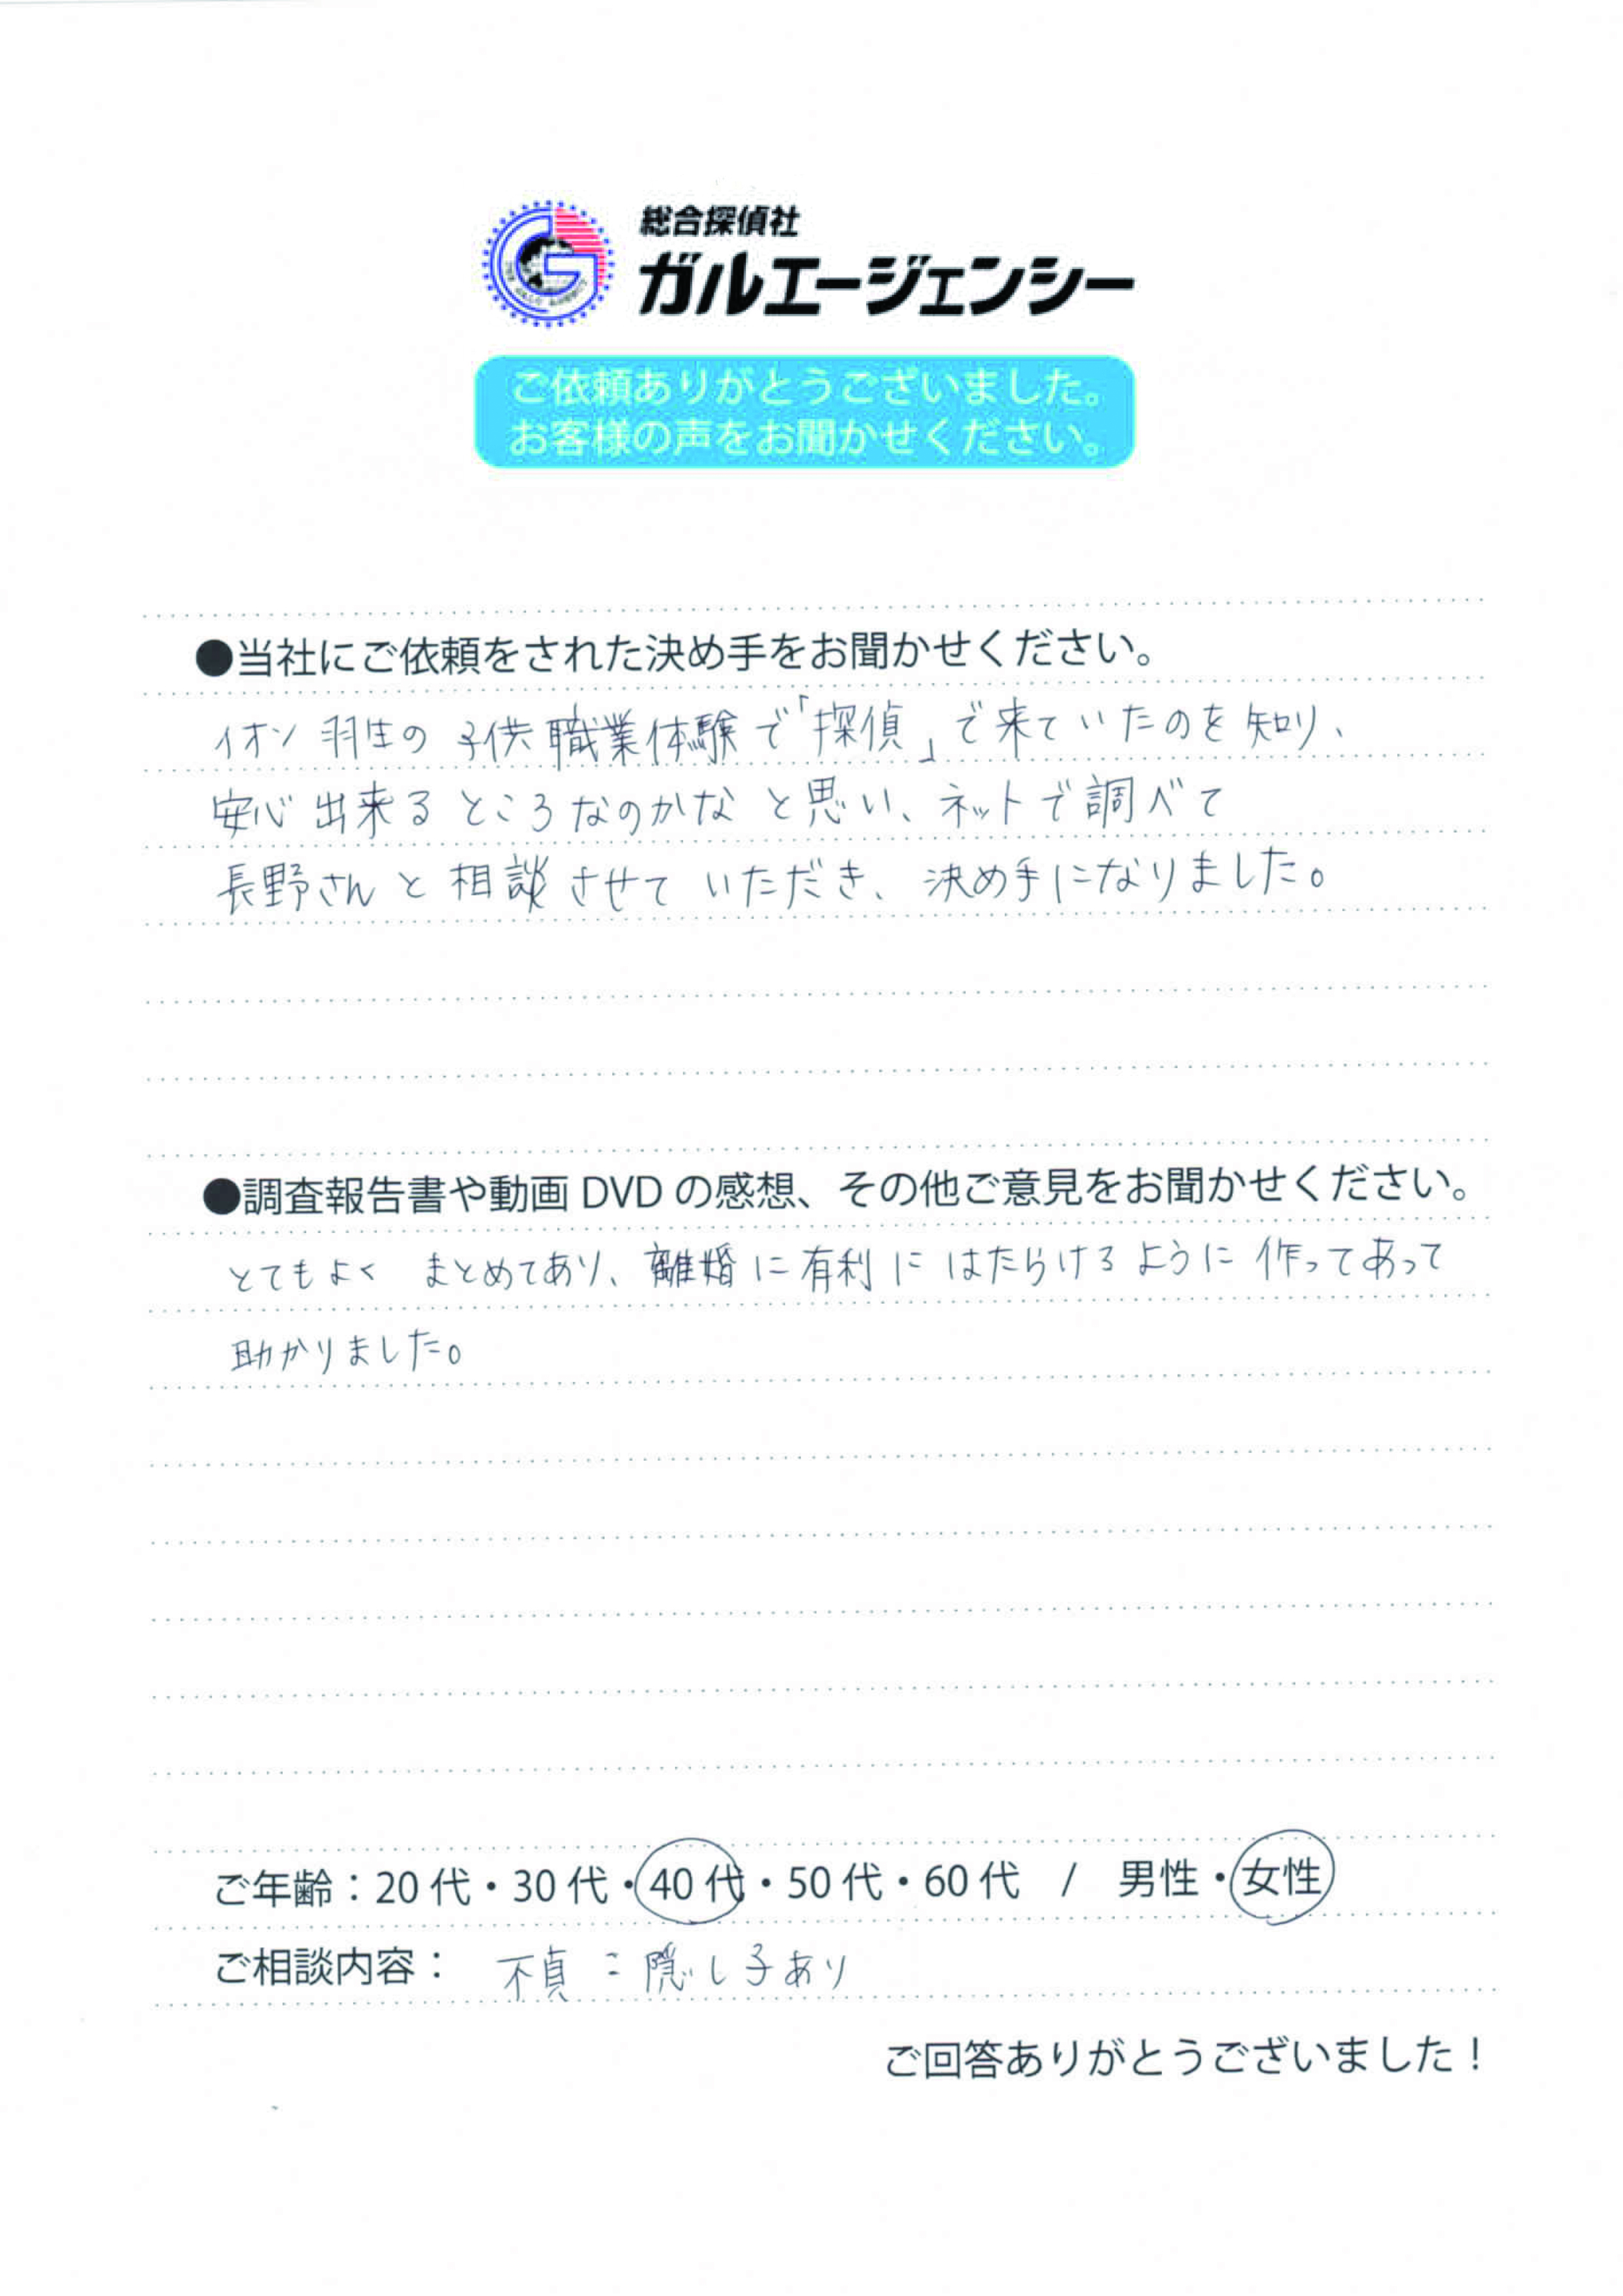 総合探偵社
ガルエージェンシー
ご依頼ありがとうございました。
お客様の声をお聞かせください。
●当社にご依頼をされた決め手をお聞かせください。
イオン羽生の子供職業体験で「探偵」で来ていたのを知り、
安心出来るところなのかなと思い、ネットで調べて
長野さんと相談させていただき、決め手になりました。
●調査報告書や動画DVDの感想、その他ご意見をお聞かせください。
とてもよくまとめてあり、離婚に有利にはたらけるように作ってあって
助かりました。
ご年齢：20代・30代・40代・50代・60代 / 男性・女性
ご相談内容： 不貞 = 隠し子あり
ご回答ありがとうございました！